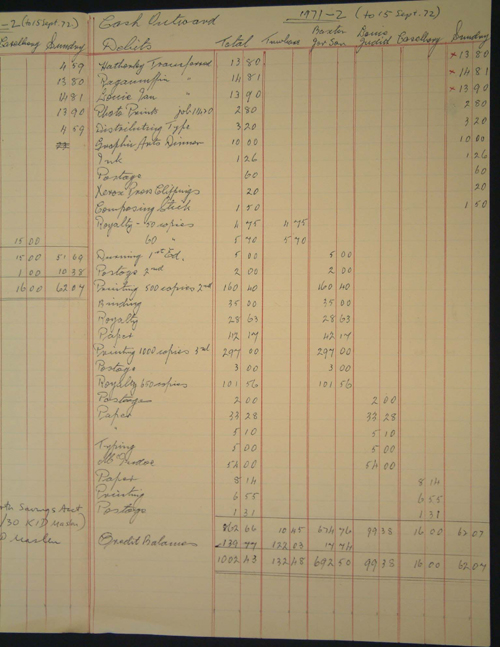 -2 (to 15 Sept. 72)
Sundry
4 59
13 80
14 81
13 90
4 59
15 00
15 00 51 69
1 00 10 38
16 00 62 07
Savings Acct
Cash Outward 1971-2 (to 15 Sept. 72)
Debits Total Sundry
Transferred 13 80 x 13 80
" 14 81 x 14 81
13 90 x 13 90
Photo Prints 2 80 2 80
Distributing Type 3 20 3 20
Graphic Arts Dinner 10 00 10 00
Ink 1 26 1 26
Postage 60 60
Xerox Press Clippings 20 20
Composing Stick 1 50 1 50
Royalty - 50 copies 4 75 4 75
60 " 5 70 5 70
1st Ed. 5 00 5 00
Postage 2nd 2 00 2 00
Printing 500 copies 2nd 160 40 160 40
Binding 35 00 35 00
Royalty 28 63 28 63
Paper 42 17 42 17
Printing 1000 copies 3rd 297 00 297 00
Postage 3 00 3 00
Royalty 650 copies 101 56 101 56
Postages 2 00 2 00
Paper 33 28 33 28
" 5 10 5 10
Typing 5 00 5 00
54 00 54 00
Paper 8 14 8 14
Printing 6 55 6 55
Postage 1 31 1 31
862 66 10 45 674 76 99 38 16 00 62 07
Credit Balances 139 77 122 03 17 74
1002 43 132 48 692 50 99 38 16 00 62 07